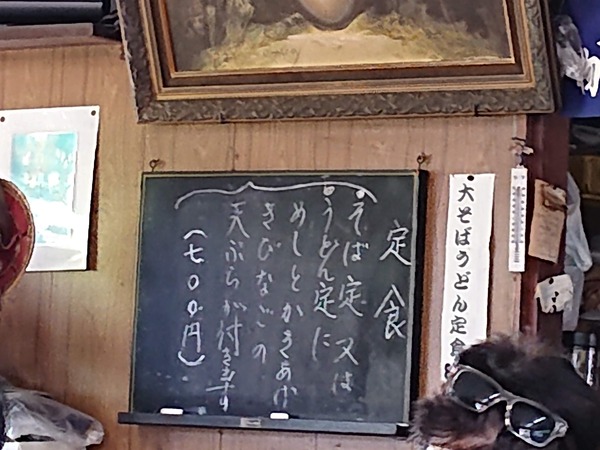 定食
そば定又は
うどん定に
めしとかきあげ
きびなごの
天ぷらが付きます
(七〇〇円)
大そばうどん定食